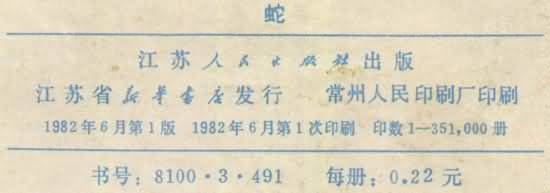 蛇
江苏人民出版社出版
江苏省新华书店发行 常州人民印刷厂印刷
1982年6月第1版 1982年6月第1次印刷 印数1—351,000册
书号：8100·3·491 每册：0.22元